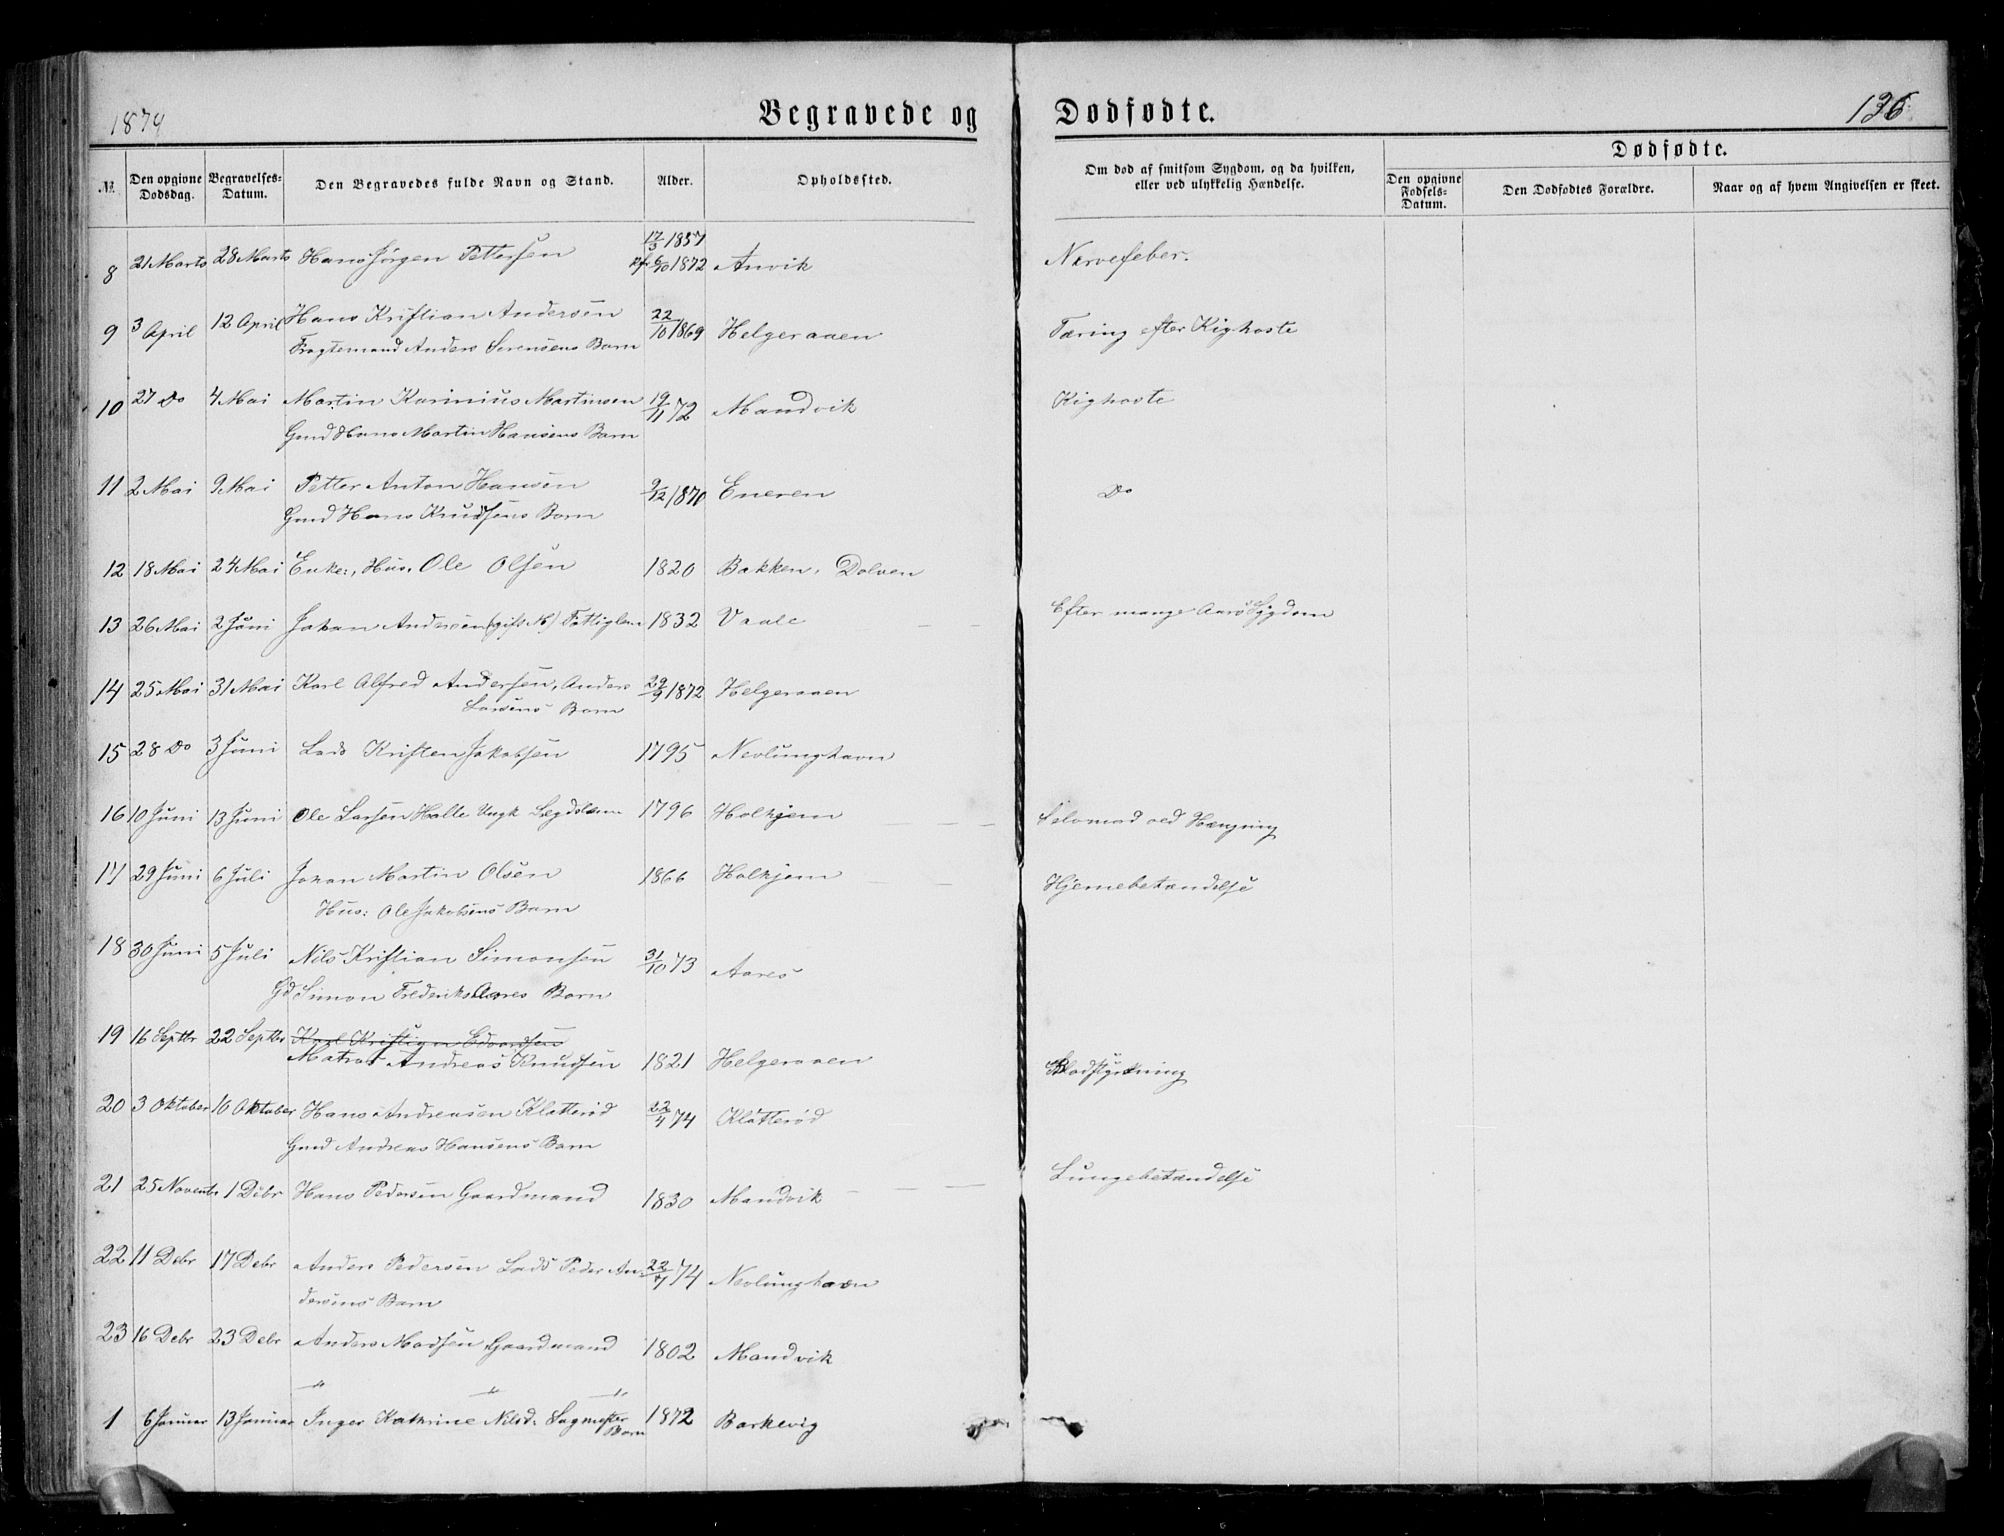 1874 Begravede og Dødfødte. 136
Dødfødte.
№ Den opgivne Dødsdag. Begravelses-Datum. Den Begravedes fulde Navn og Stand. Alder. Opholdssted. Om død af smitsom Sygdom, og da hvilken, eller ved ulykkelig Hændelse. Den opgivne Fødsels-Datum. Den Dødfødtes Forældre. Naar og af hvem Angivelsen er skeet.
17/3 1857
8 21 Marts 28 Marts Hans Jørgen Pettersen 6/10 1872 Anvik Nervefeber.
9 3 April 12 April Hans Kristian Andersen 22/10 1869 Helgeraaen Tæring efter Kighoste
Fragtemand Anders Sørensens Barn
10 27 Do 4 Mai Martin Karinius Martinsen 19/11 72 Mandvik Kighoste
Gmd Hans Martin Hansens Barn
11 2 Mai 9 Mai Petter Anton Hansen 9/12 1870 Eneren Do
Gmd Hans Knudsens Barn
12 18 Mai 24 Mai Enke:, Hus. Ole Olsen 1820 Bakken, Dolven
13 26 Mai 2 Juni Johan Andersen (gift M) Fattiglem 1832 Vaale Efter mange Aars Sygdom
14 25 Mai 31 Mai Karl Alfred Andersen, Anders 29/9 1872 Helgeraaen
Larsens Barn
15 28 Do 3 Juni Lods Kristen Jakobsen 1795 Nevlunghavn
16 10 Juni 13 Juni Ole Larsen Halle Ungk Lægdslem 1796 Holkjem Selvmord ved Hængning
17 29 Juni 6 Juli Johan Martin Olsen 1866 Holkjem Hjernebetændelse
Hus: Ole Jakobsens Barn
18 30 Juni 5 Juli Nils Kristian Simonsen 31/10 73 Aares
Gd Simon Frederiks Aares Barn
19 16 Septbr 22 Septbr Karl Kristian Edvardsen
Matros Andreas Knudsen 1821 Helgeraaen Blodstyrtning
20 3 Oktober 10 Oktober Hans Andreasen Klatterød 22/4 74 Klåtterød
Gmd Andreas Hansens Barn
21 25 Novembr 1 Debr Hans Pedersen Gaardmand 1830 Mandvik Lungebetændelse
22 11 Debr 17 Debr Anders Pedersen Lods Peder An- 22/7 74 Nevlunghavn
dersens Barn
23 16 Debr 23 Debr Anders Madsen Gaardmand 1802 Mandvik
1 6 Januar 13 Januar Inger Kathrine Nilsd: Sagmester 1872 Barkevig
Barn